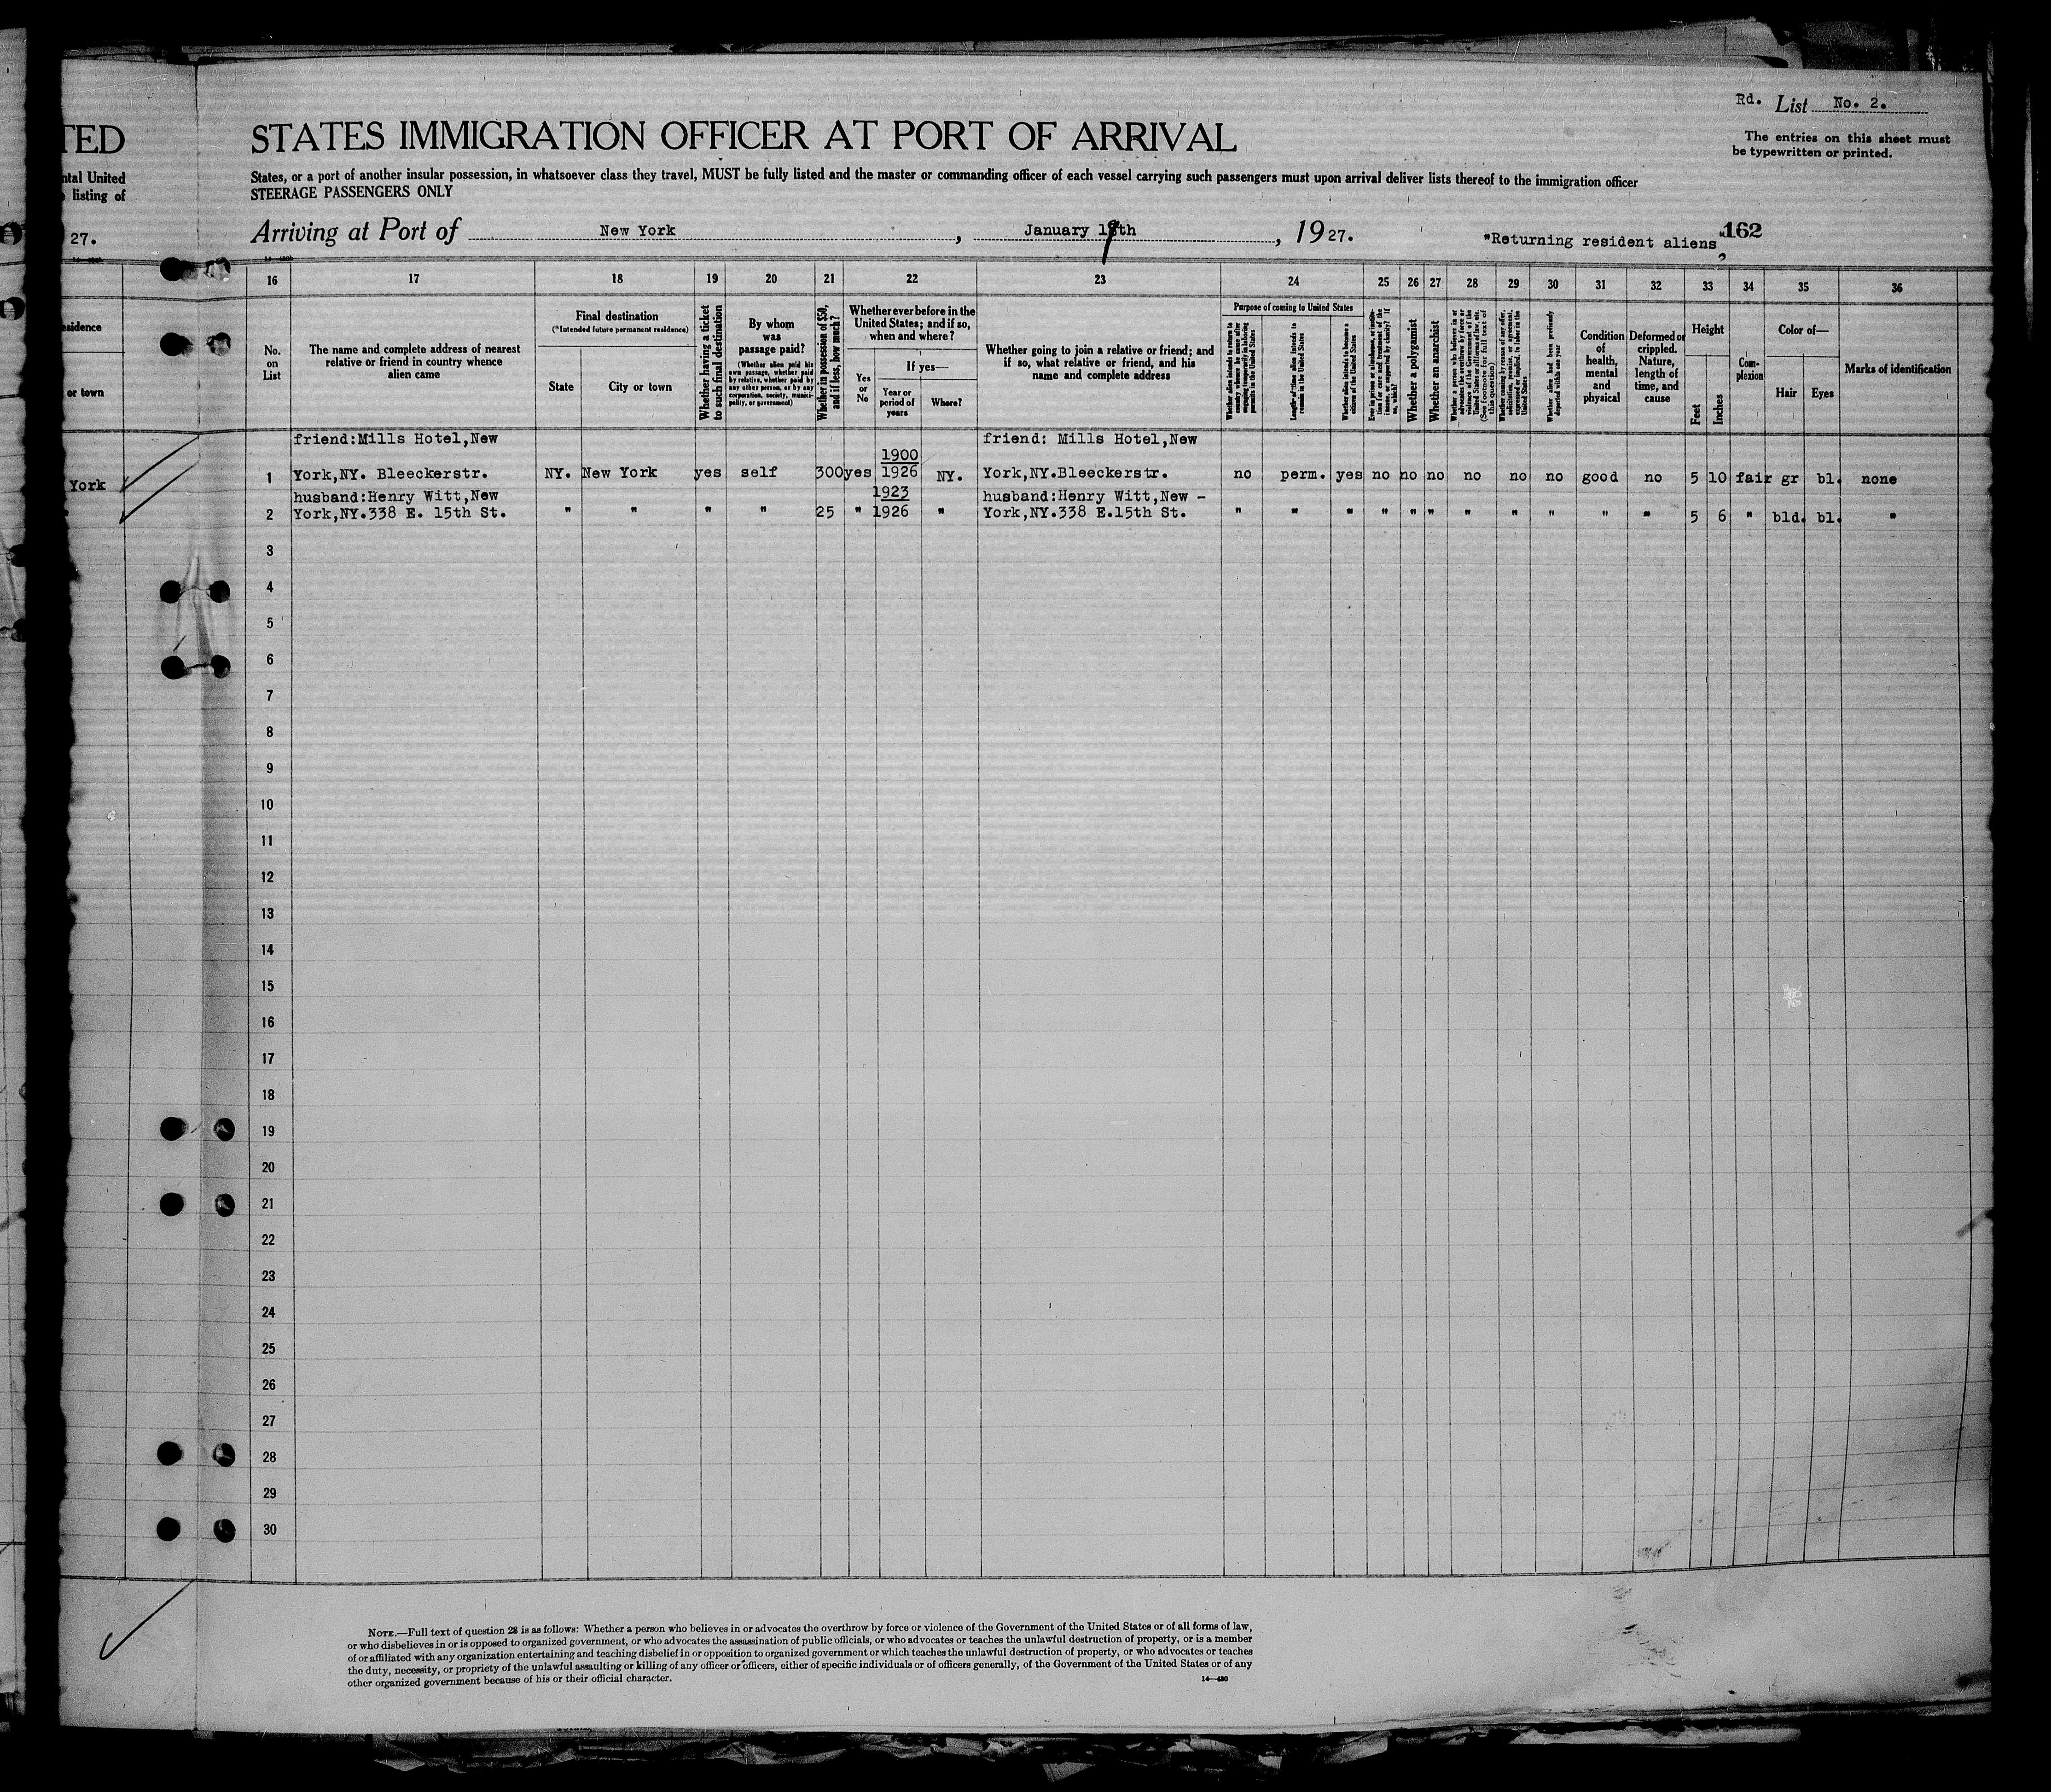 TED
ntal United
listing of
27.
esidence
or town
York
"
Rd. List No. 2.
STATES IMMIGRATION OFFICER AT PORT OF ARRIVAL
The entries on this sheet must
be typewritten or printed.
States, or a port of another insular possession, in whatsoever class they travel, MUST be fully listed and the master or commanding officer of each vessel carrying such passengers must upon arrival deliver lists thereof to the immigration officer
STEERAGE PASSENGERS ONLY
Arriving at Port of New York, January 19th, 1927. "Returning resident aliens" 162
16 17 18 19 20 21 22 23 24 25 26 27 28 29 30 31 32 33 34 35 36
No.
on
List
The name and complete address of nearest
relative or friend in country whence
alien came
Final destination
(*Intended future permanent residence)
State
City or town
Whether having a ticket
to such final destination
By whom
was
passage paid?
(Whether alien paid his
own passage, whether paid
by relative, whether paid by
any other person, or by any
corporation, society, munici-
pality, or government)
Whether in possession of $50,
and if less, how much?
Whether ever before in the
United States; and if so,
when and where?
Yes
or
No
If yes—
Year or
period of
years
Where?
Whether going to join a relative or friend; and
if so, what relative or friend, and his
name and complete address
Purpose of coming to United States
Whether alien intends to return to
country whence he came after
engaging temporarily in laboring
pursuits in the United States
Length of time alien intends to
remain in the United States
Whether alien intends to become a
citizen of the United States
Ever in prison or almshouse, or institu-
tion for care and treatment of the
insane, or supported by charity? If
so, which?
Whether a polygamist
Whether an anarchist
Whether a person who believes in or
advocates the overthrow by force or
violence of the Government of the
United States or all forms of law, etc.
(See footnote for full text of
this question)
Whether coming by reason of any offer,
solicitation, promise, or agreement,
expressed or implied, to labor in the
United States
Whether alien had been previously
deported within one year
Condition
of
health,
mental
and
physical
Deformed or
crippled.
Nature,
length of
time, and
cause
Height
Feet
Inches
Com-
plexion
Color of—
Hair
Eyes
Marks of identification
friend:Mills Hotel,New 1900 friend: Mills Hotel,New
1 York,NY. Bleeckerstr. NY. New York yes self 300 yes 1926 NY. York,NY.Bleeckerstr. no perm. yes no no no no no no good no 5 10 fair gr bl. none
husband:Henry Witt,New 1923 husband:Henry Witt,New -
2 York,NY.338 E. 15th St. " " " " 25 " 1926 " York,NY.338 E.15th St. " " " " " " " " " " " 5 6 " bld. bl. "
3
4
5
6
7
8
9
10
11
12
13
14
15
16
17
18
19
20
21
22
23
24
25
26
27
28
29
30
NOTE.—Full text of question 28 is as follows: Whether a person who believes in or advocates the overthrow by force or violence of the Government of the United States or of all forms of law,
or who disbelieves in or is opposed to organized government, or who advocates the assassination of public officials, or who advocates or teaches the unlawful destruction of property, or is a member
of or affiliated with any organization entertaining and teaching disbelief in or opposition to organized government or which teaches the unlawful destruction of property, or who advocates or teaches
the duty, necessity, or propriety of the unlawful assaulting or killing of any officer or officers, either of specific individuals or of officers generally, of the Government of the United States or of any
other organized government because of his or their official character.
14—480